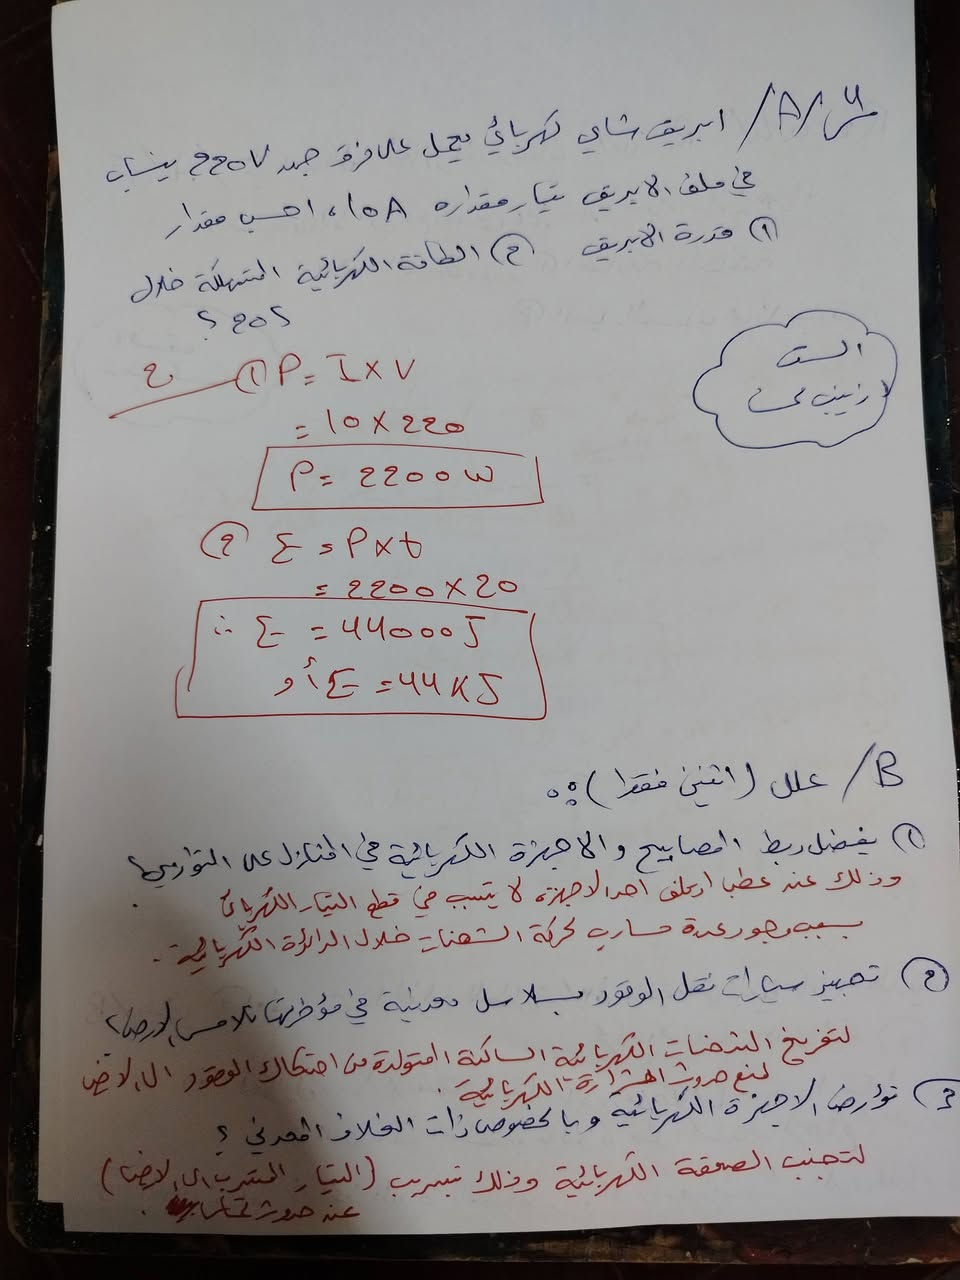 س4/A/ ابريق شاي كهربائي يعمل على فرق جهد 220V ينساب
في ملف الابريق تيار مقداره 10A، احسب مقدار
① قدرة الابريق ② الطاقة الكهربائية المستهلكة خلال
20s ؟
الست
زينب
ج ① P = I×V
= 10×220
P = 2200 W
② E = P×t
= 2200×20
∴ E = 44000J
أو E = 44KJ
B/ علل (اثنين فقط):
① يفضل ربط المصابيح والاجهزة الكهربائية في المنازل على التوازي؟
وذلك عند عطب او تلف احد الاجهزة لا يتسبب في قطع التيار الكهربائي
بسبب وجود عدة مسارب لحركة الشحنات خلال الدائرة الكهربائية.
② تجهيز سيارات نقل الوقود بسلاسل معدنية في مؤخرتها تلامس الارض؟
لتفريغ الشحنات الكهربائية الساكنة المتولدة من احتكاك الوقود الى الارض
لمنع حدوث الشرارة الكهربائية.
③ تؤرض الاجهزة الكهربائية وبالخصوص ذات الغلاف المعدني ؟
لتجنب الصعقة الكهربائية وذلك بتسريب (التيار المتسرب الى الارض)
عند حدوث تماس.